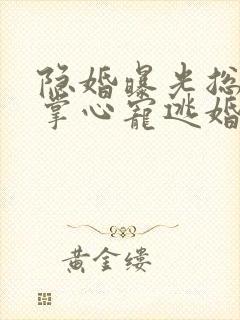 隐婚曝光总
掌心宠逃婚
黄金缕